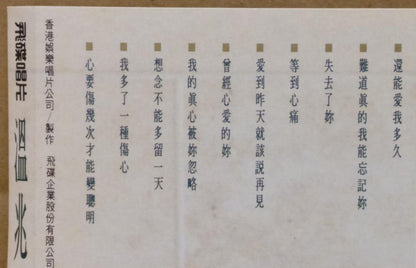 還能愛我多久
難道真的我能忘記妳
失去了妳
等到心痛
愛到昨天就該說再見
曾經心愛的妳
我的真心被妳忽略
想念不能多留一天
我多了一種傷心
心要傷幾次才能變聰明
香港娛樂唱片公司/製作 飛碟企業股份有限公司
飛碟唱片 溫兆